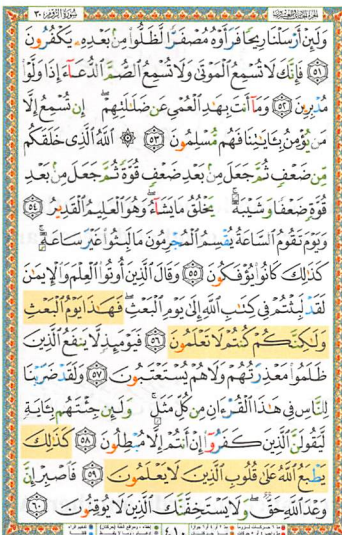 سُورَةُ الرُّومِ ٣٠
وَلَئِنْ أَرْسَلْنَا رِيحًا فَرَأَوْهُ مُصْفَرًّا لَّظَلُّوا۟ مِنۢ بَعْدِهِۦ يَكْفُرُونَ
٥١ فَإِنَّكَ لَا تُسْمِعُ ٱلْمَوْتَىٰ وَلَا تُسْمِعُ ٱلصُّمَّ ٱلدُّعَآءَ إِذَا وَلَّوْا۟
مُدْبِرِينَ ٥٢ وَمَآ أَنتَ بِهَٰدِ ٱلْعُمْىِ عَن ضَلَٰلَتِهِمْ ۖ إِن تُسْمِعُ إِلَّا
مَن يُؤْمِنُ بِـَٔايَٰتِنَا فَهُم مُّسْلِمُونَ ٥٣ ۞ ٱللَّهُ ٱلَّذِى خَلَقَكُم
مِّن ضَعْفٍ ثُمَّ جَعَلَ مِنۢ بَعْدِ ضَعْفٍ قُوَّةً ثُمَّ جَعَلَ مِنۢ بَعْدِ
قُوَّةٍ ضَعْفًا وَشَيْبَةً ۚ يَخْلُقُ مَا يَشَآءُ ۖ وَهُوَ ٱلْعَلِيمُ ٱلْقَدِيرُ ٥٤
وَيَوْمَ تَقُومُ ٱلسَّاعَةُ يُقْسِمُ ٱلْمُجْرِمُونَ مَا لَبِثُوا۟ غَيْرَ سَاعَةٍ ۚ
كَذَٰلِكَ كَانُوا۟ يُؤْفَكُونَ ٥٥ وَقَالَ ٱلَّذِينَ أُوتُوا۟ ٱلْعِلْمَ وَٱلْإِيمَٰنَ
لَقَدْ لَبِثْتُمْ فِى كِتَٰبِ ٱللَّهِ إِلَىٰ يَوْمِ ٱلْبَعْثِ ۖ فَهَٰذَا يَوْمُ ٱلْبَعْثِ
وَلَٰكِنَّكُمْ كُنتُمْ لَا تَعْلَمُونَ ٥٦ فَيَوْمَئِذٍ لَّا يَنفَعُ ٱلَّذِينَ
ظَلَمُوا۟ مَعْذِرَتُهُمْ وَلَا هُمْ يُسْتَعْتَبُونَ ٥٧ وَلَقَدْ ضَرَبْنَا
لِلنَّاسِ فِى هَٰذَا ٱلْقُرْءَانِ مِن كُلِّ مَثَلٍ ۚ وَلَئِن جِئْتَهُم بِـَٔايَةٍ
لَّيَقُولَنَّ ٱلَّذِينَ كَفَرُوٓا۟ إِنْ أَنتُمْ إِلَّا مُبْطِلُونَ ٥٨ كَذَٰلِكَ
يَطْبَعُ ٱللَّهُ عَلَىٰ قُلُوبِ ٱلَّذِينَ لَا يَعْلَمُونَ ٥٩ فَٱصْبِرْ إِنَّ
وَعْدَ ٱللَّهِ حَقٌّ ۖ وَلَا يَسْتَخِفَّنَّكَ ٱلَّذِينَ لَا يُوقِنُونَ ٦٠
٤١٠